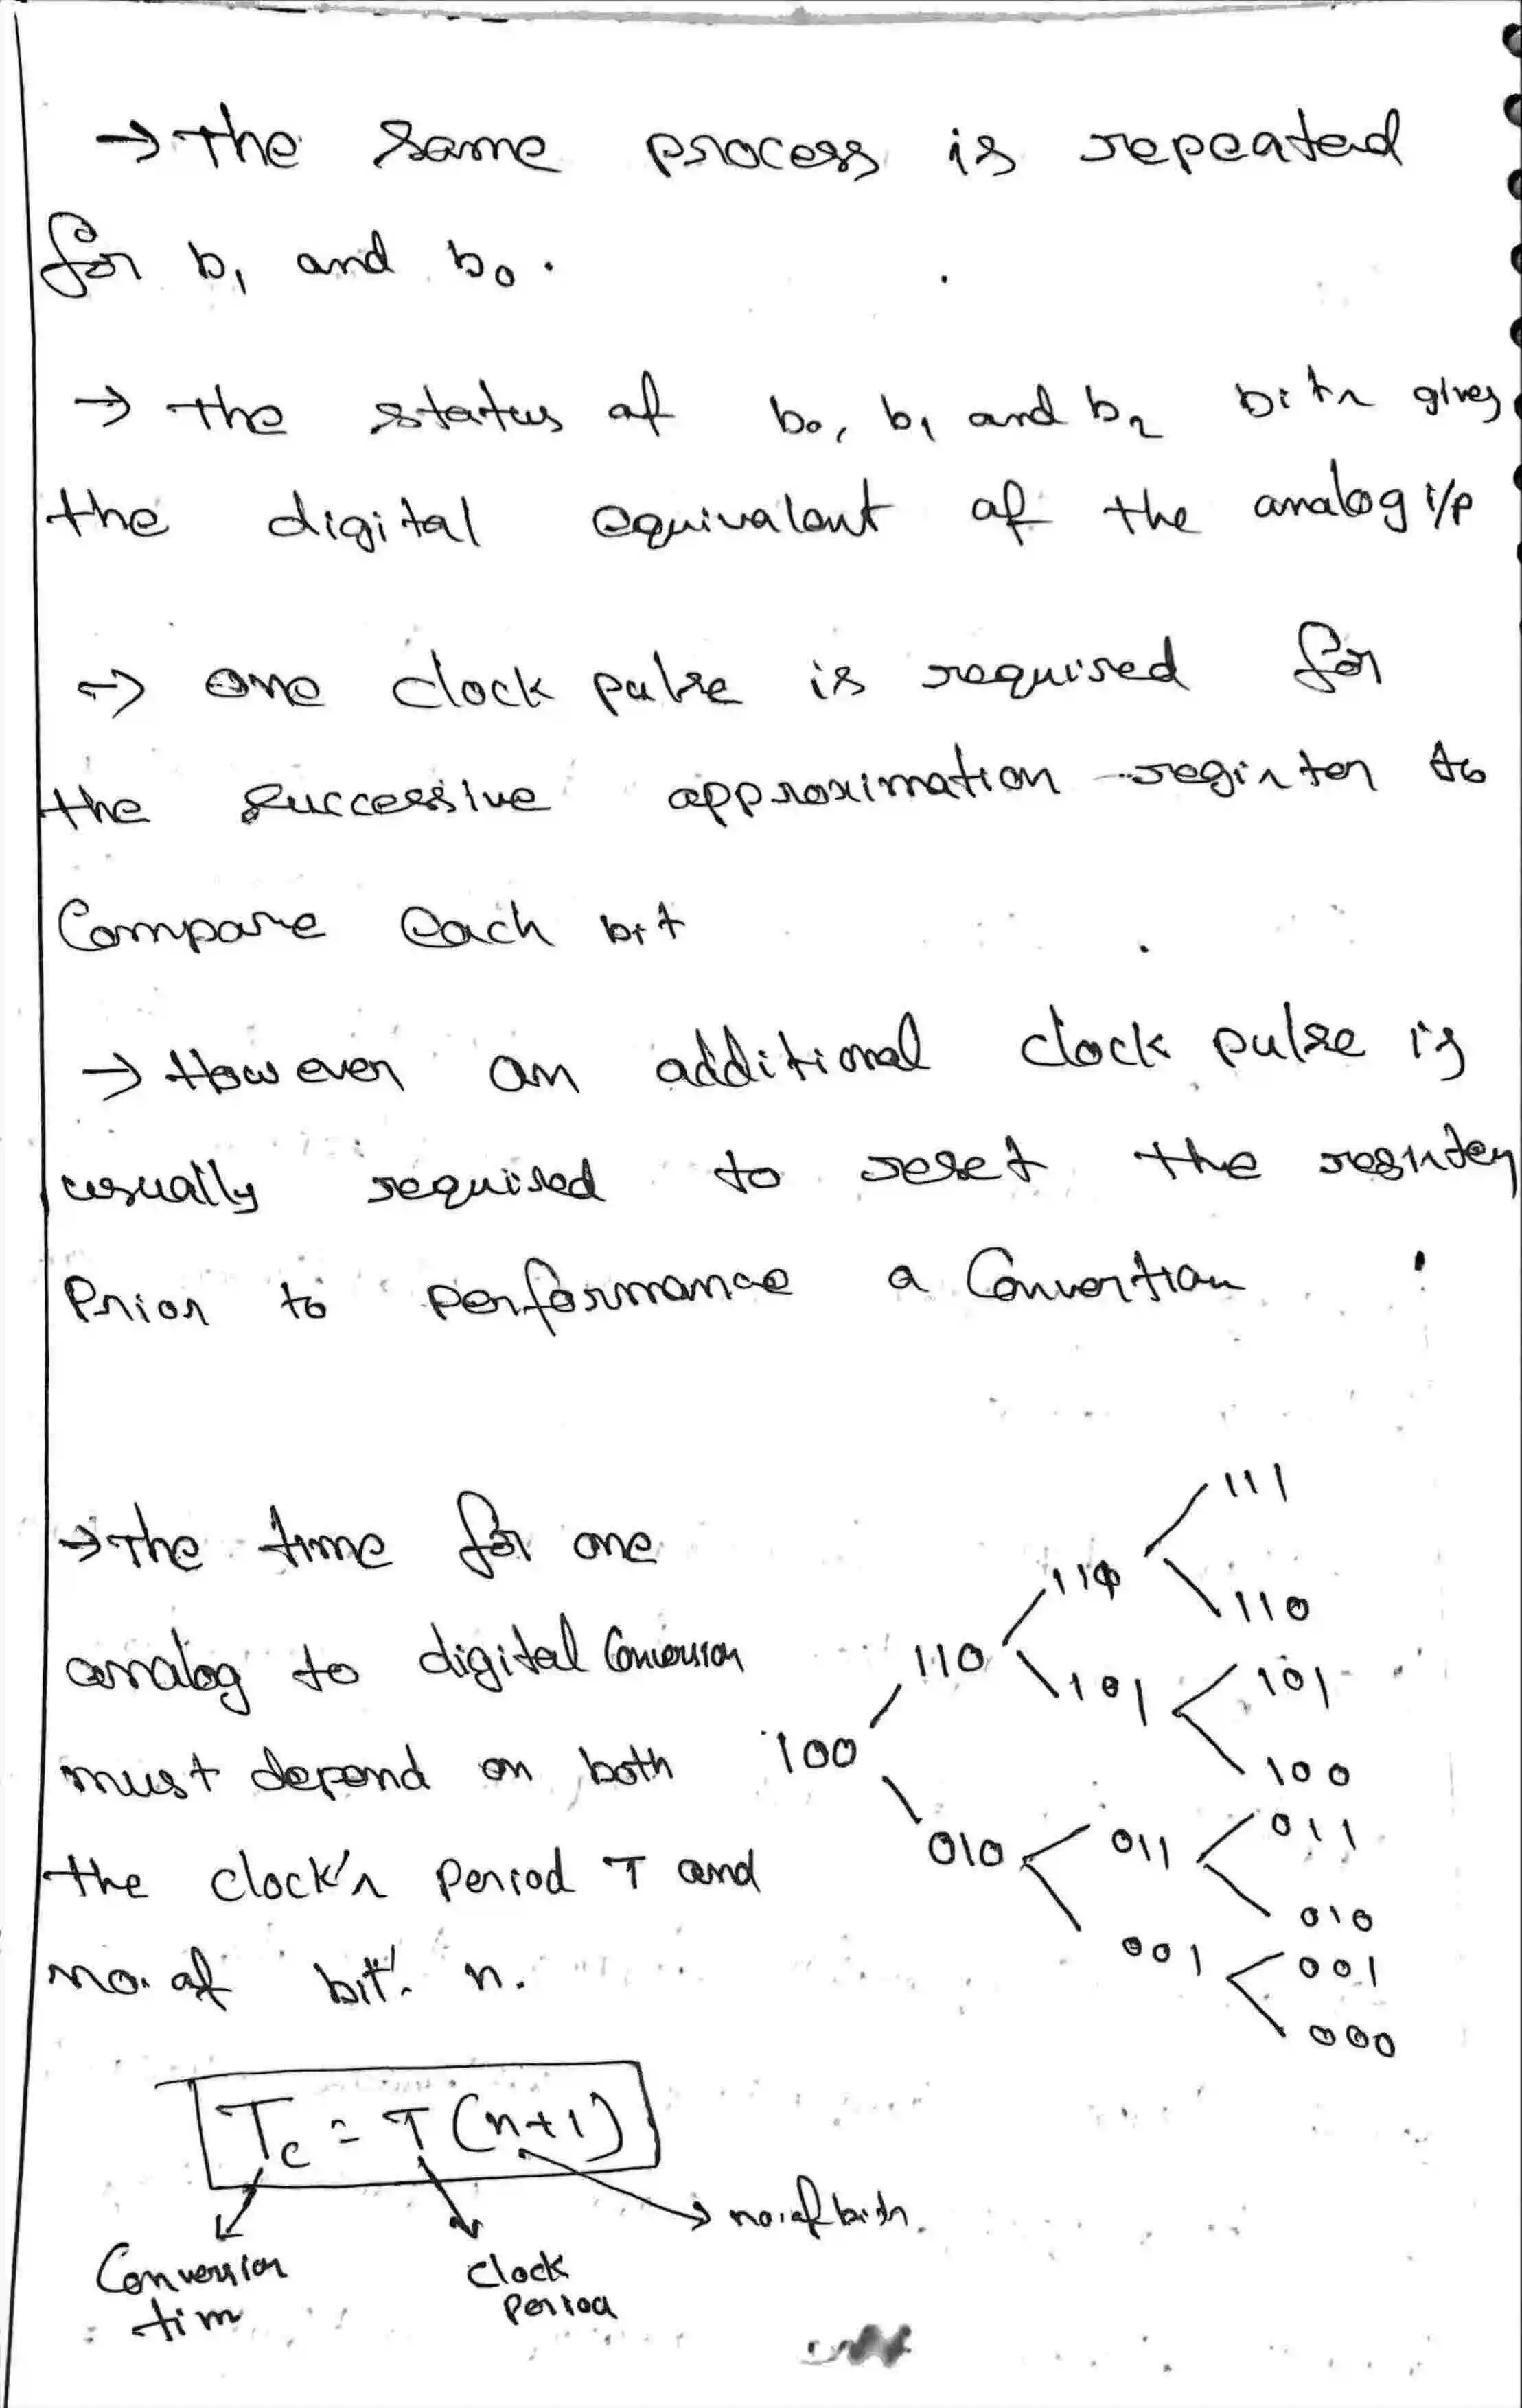 → The same process is repeated
for b1 and b0.
→ The status of b0, b1 and b2 bits gives
the digital equivalent of the analog i/p
→ one clock pulse is required for
the successive approximation register to
Compare each bit
→ However an additional clock pulse is
usually required to reset the register
Prior to performance a Convertion
→ The time for one
analog to digital Conversion
must depend on both
the clock's Period T and
no. of bit's n.
111
110
110
110
101
101
100
100
010
011
011
010
001
001
000
Tc = T (n+1)
no. of bits.
Conversion
tim
Clock
Period